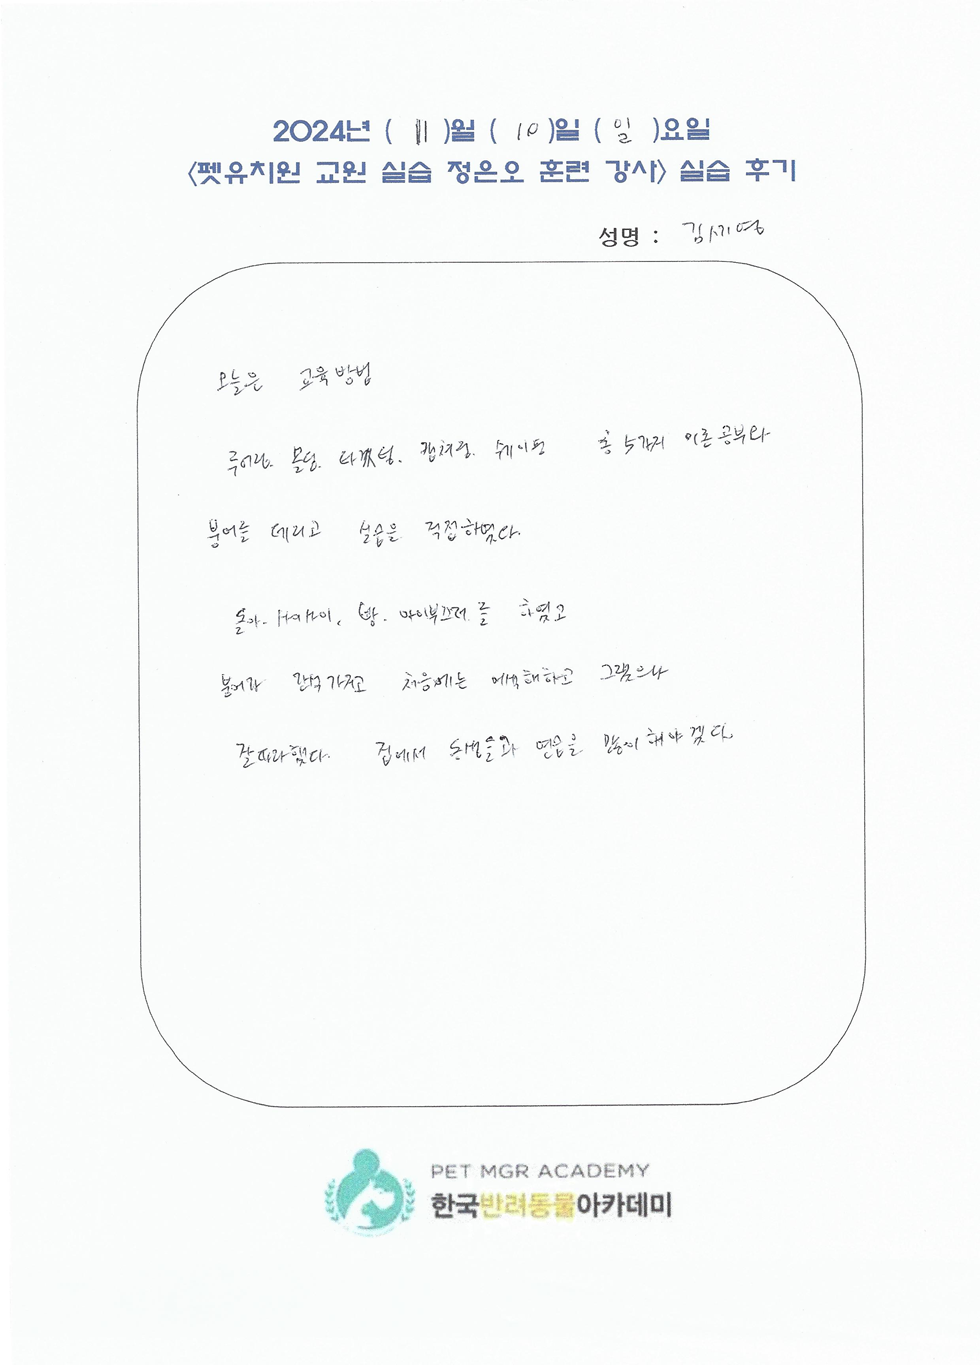 2024년 ( 11 )월 ( 10 )일 ( 일 )요일
<펫유치원 교원 실습 정은오 훈련 강사> 실습 후기
성명 : 김세영
오늘은 교육방법
루어링. 몰딩. 타겟팅. 캡쳐링. 쉐이핑 총 5가지 이론공부와
붕어를 데리고 실습을 직접하였다.
돌아. 하이, 빵. 를 하였고
붕어가 간식가지고 처음에는 어색해하고 그랬으나
잘따라했다. 집에서 동생들과 연습을 많이 해야겠다.
PET MGR ACADEMY
한국반려동물아카데미